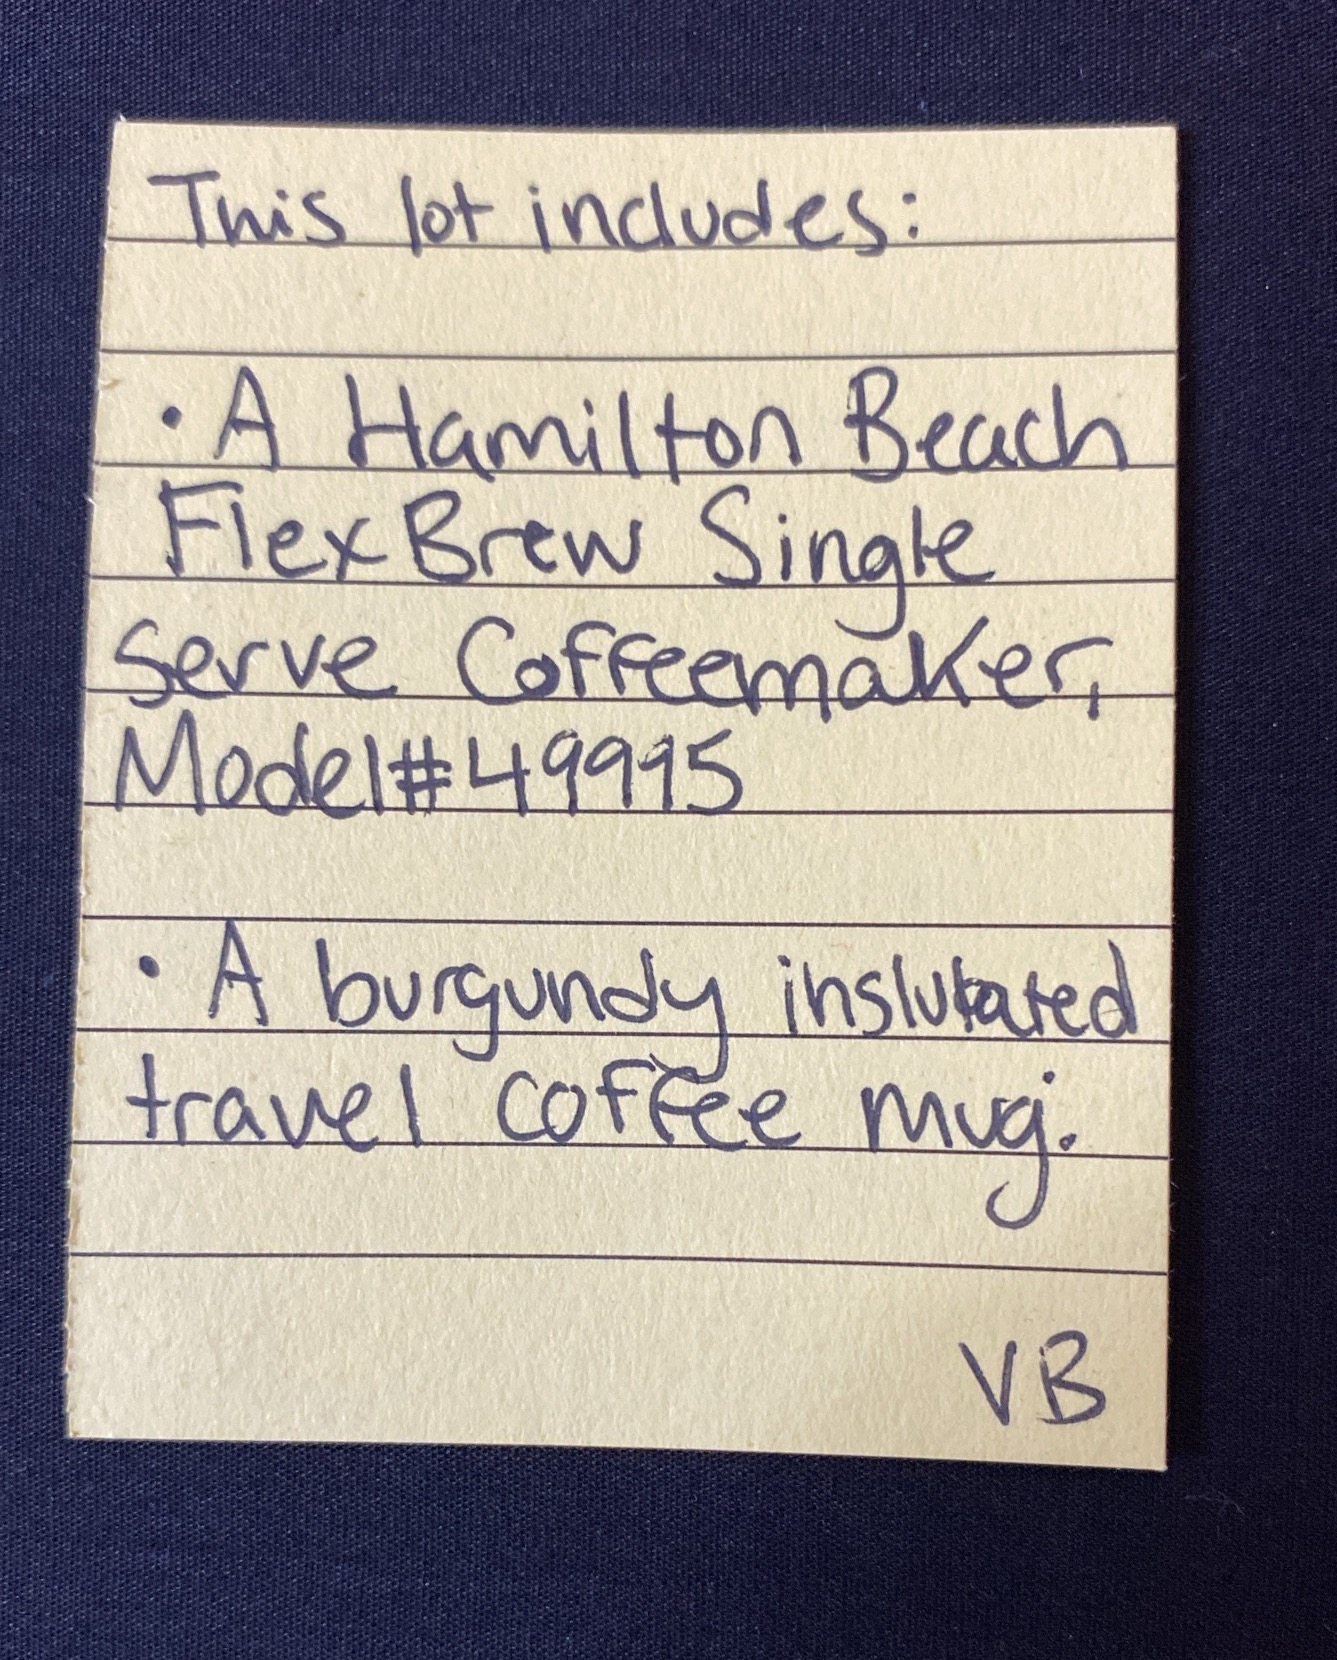 This lot includes:
• A Hamilton Beach
FlexBrew Single
Serve Coffeemaker,
Model#49995
• A burgundy inslutated
travel coffee mug.
VB